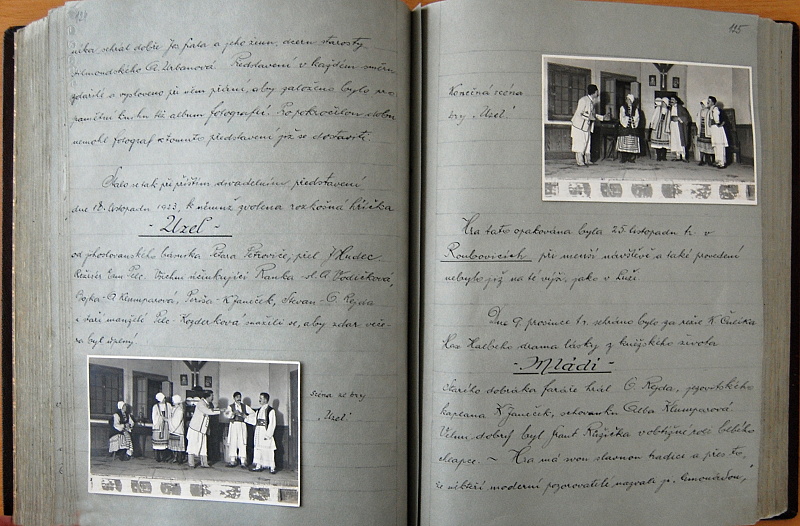 níka sehrál dobře Jos. Fiala a jeho ženu, dceru starosty
A. Urbanová. Představení v každém směru
zdařilé a vysloveno při něm přání, aby založeno bylo pro
pamětní knihu též album fotografií. Po pokročilou dobu
nemohl fotograf k tomuto představení již se dostaviti.
Stalo se tak při příštím divadelním představení
dne 18. listopadu 1933, k němuž zvolena rozkošná hříčka
- Uzel -
od jihoslovanského básníka Petara Petroviče, přel. J. Hudec.
Režisér Em. Pelc. Všichni účinkující Ranka - sl. A. Vodičková,
Bojka - A. Klumparová, Periša - K. Janeček, Stevan - O. Rejda
a staří manželé Pelc - Kozderková snažili se, aby zdar veče-
ra byl úplný.
Scéna ze hry
„Uzel“.
115
Konečná scéna
hry „Uzel“.
Hra tato opakována byla 25. listopadu t.r. v
Roubovicích při menší návštěvě a také provedení
nebylo již na té výši, jako v Luži.
Dne 9. prosince t.r. sehráno bylo za režie K. Čulíka
Max Halbeho drama lásky z kněžského života
- Mládí -
Starého dobráka faráře hrál O. Rejda, jezovitského
kaplana K. Janeček, schovanku Alba Klumparová.
Velmi dobrý byl Frant. Růžička v obtížné roli blbého
chlapce. - Hra má svou slavnou tradici a přes to,
že někteří moderní pozorovatelé nazvali ji „limonádou“,